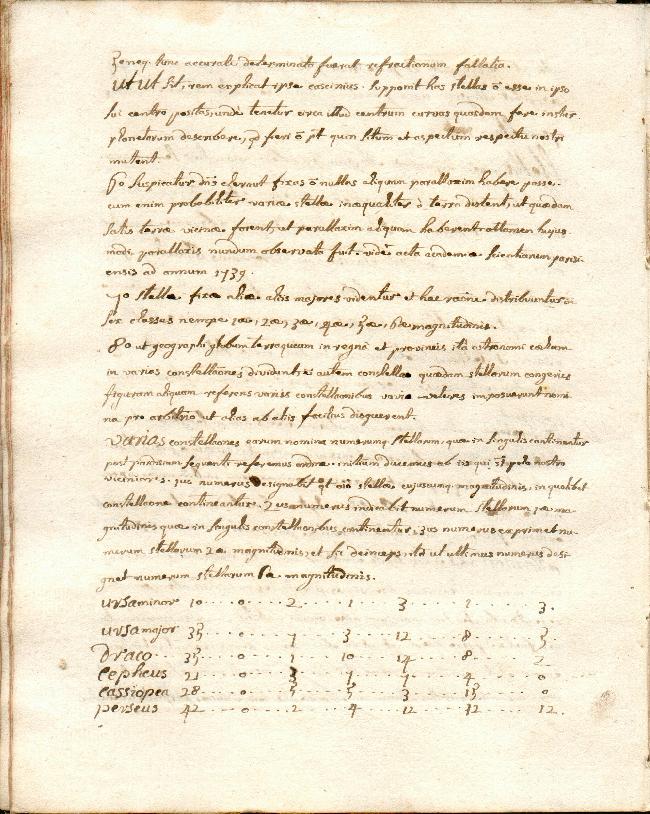 neq. hinc accurate determinata fuerat refractionum fallatia.
Ut ut sit, rem explicat ipse cascinius. supponit has stellas ō esse in ipso
sui centro positas, unde tenetur circa illud centrum curvas quasdam fere instar
planetarum describere, qd fieri ō pt quin situm et aspectum respectu nostri
mutent.
6o suspicatur dns cleraut fixas ō nullas aliquam parallaxim habere posse.
cum enim probabiliter variæ stellæ inæqualiter à terra distent, ut quædam
satis terræ vicinæ forent, et parallaxim aliquam haberent. attamen hujus
modi parallaxis nundum observata fuit. vide acta academiæ scientiarum parisi
ensis ad annum 1739.
7o stellæ fixæ aliæ aliis majores videntur et hac raine distribuuntur
sex classes nempe 1æ, 2æ, 3æ, 4æ, 5æ, 6æ magnitudinis.
8o ut geographi globum terraqueum in regna et provincias ità astronomi cœlum
in varias constellaones dividunt; autem constellao quædam stellarum congeries
figuram aliquam referens variis constellaonibus varia veteres imposuerunt nomi
na pro arbitrio ut alias ab aliis facilius disguerent.
Varias constellaones earum nomina numerumq stellarum, quæ in singulis continentur
post sequenti referemus ordine. initium ducemus ab iis qui polo nostro
viciniores. 1us numerus designabit qt oīa stellæ cujuscumq magnitudinis, in qualibet
constellaone contineantur. 2us numerus indicabit numerum stellarum 1æ ma-
gnitudinis quæ in singulis constellaonibus continentur, 3us numerus exprimet nu-
merum stellarum 2æ magnitudinis; et sic deinceps, ità ut ultimus numerus desi
gnet numerum stellarum 6æ magnitudinis.
ursa minor 10 ... 0 ... 2 ... 1 ... 3 ... 1 ... 3.
ursa major 35 ... 0 ... 7 ... 3 ... 12 ... 8 ... 5
Draco 33 ... 0 ... 1 ... 10 ... 14 ... 8 ... 2
Cepheus 21 ... 0 ... 3 ... 7 ... 7 ... 4 ... 0
cassiopea 28 ... 0 ... 5 ... 5 ... 3 ... 15 ... 0
perseus 42 ... 0 ... 2 ... 4 ... 12 ... 12 ... 12.